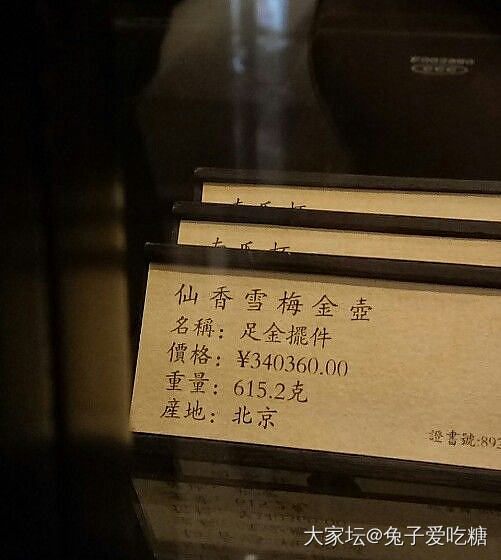 仙香雪梅金壺
名稱：足金擺件
價格：¥340360.00
重量：615.2克
産地：北京
證書號:893
大家坛@兔子爱吃糖